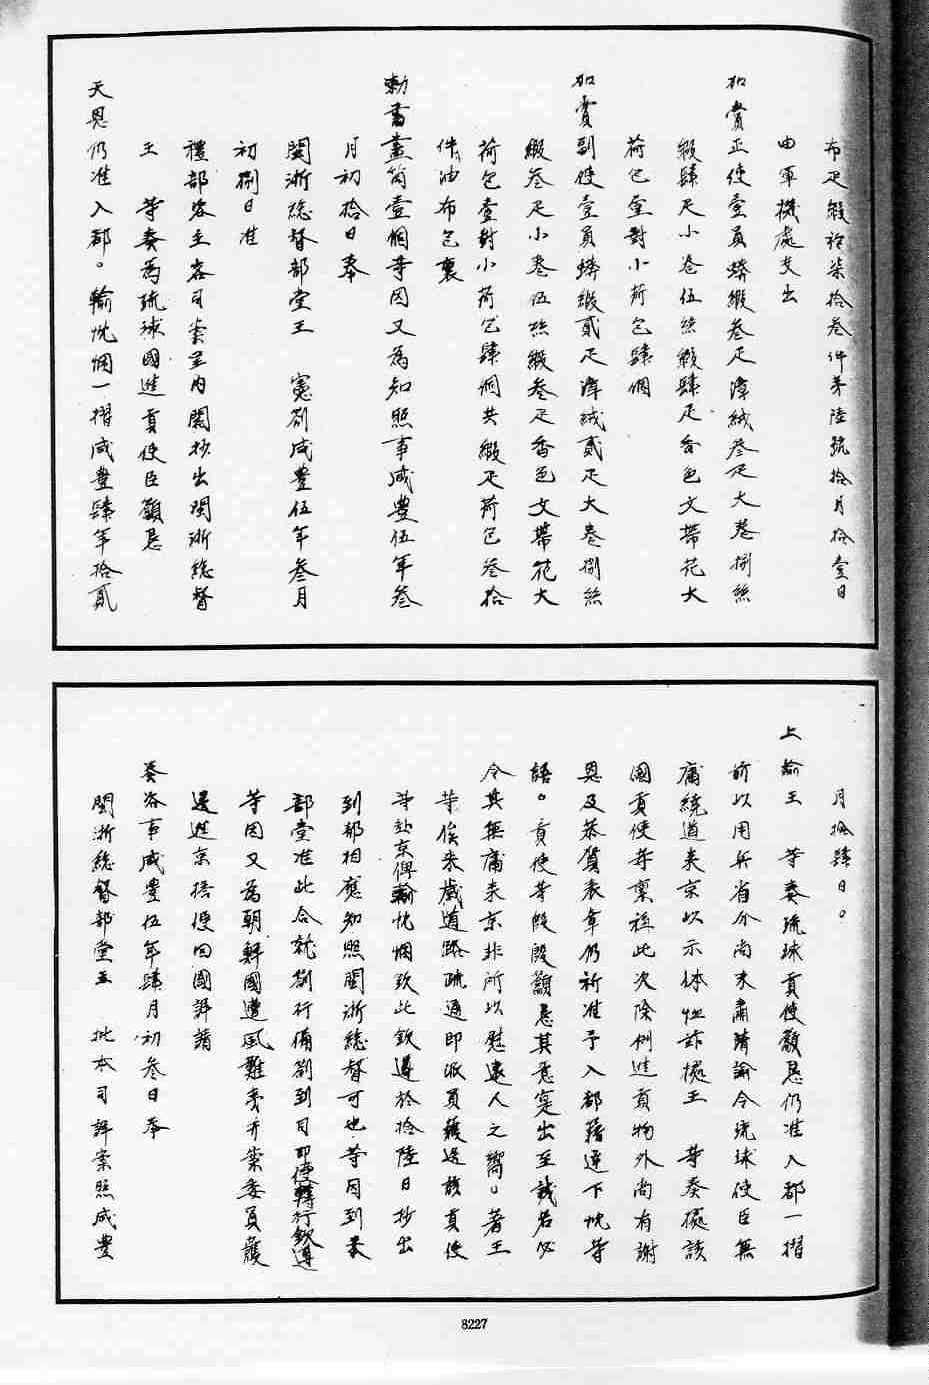 布疋緞拾柒拾叁件茅陸號拾月拾壹日
由軍機處支出
加賞正使壹員蟒緞叁疋漳絨叁疋大卷捌絲
緞肆疋小卷伍絲緞肆疋香色文帶花大
荷包壹對小荷包肆個
加賞副使壹員蟒緞貳疋漳絨貳疋大卷捌絲
緞叁疋小卷伍絲緞叁疋香色文帶花大
荷包壹對小荷包肆個共緞疋荷包叁拾
件油布包裹
勅書畫筒壹個等因又為知照事咸豐伍年叁
月初拾日奉
閩浙總督部堂王 憲劄咸豐伍年叁月
初捌日准
禮部咨主客司案呈內閣抄出閩浙總督
王 等奏為琉球國進貢使臣籲懇
天恩仍准入都。輸忱悃一摺咸豐肆年拾貳
月拾肆日。
上諭王 等奏琉球貢使籲懇仍准入都一摺
前以用兵省分尚未肅清諭令琉球使臣無
庸繞道來京以示体恤茲據王 等奏據該
國貢使等稟稱此次除例進貢物外尚有謝
恩及恭賀表章仍祈准予入都藉達下忱等
語。貢使等殷殷籲懇其意寔出至誠若必
令其無庸來京非所以慰遠人之嚮。著王
等俟來歲道路疏通即派員護送該貢使
等赴京俾輸忱悃欽此欽遵於拾陸日抄出
到部相應知照閩浙總督可也等因到本
部堂准此合就劄行備劄到司即便轉行欽遵
等因又為朝鮮國遭風難夷開案委員護
送進京搭便回國詳請
奏咨事咸豐伍年肆月初叁日奉
閩浙總督部堂王 批本司詳案照咸豐
8227